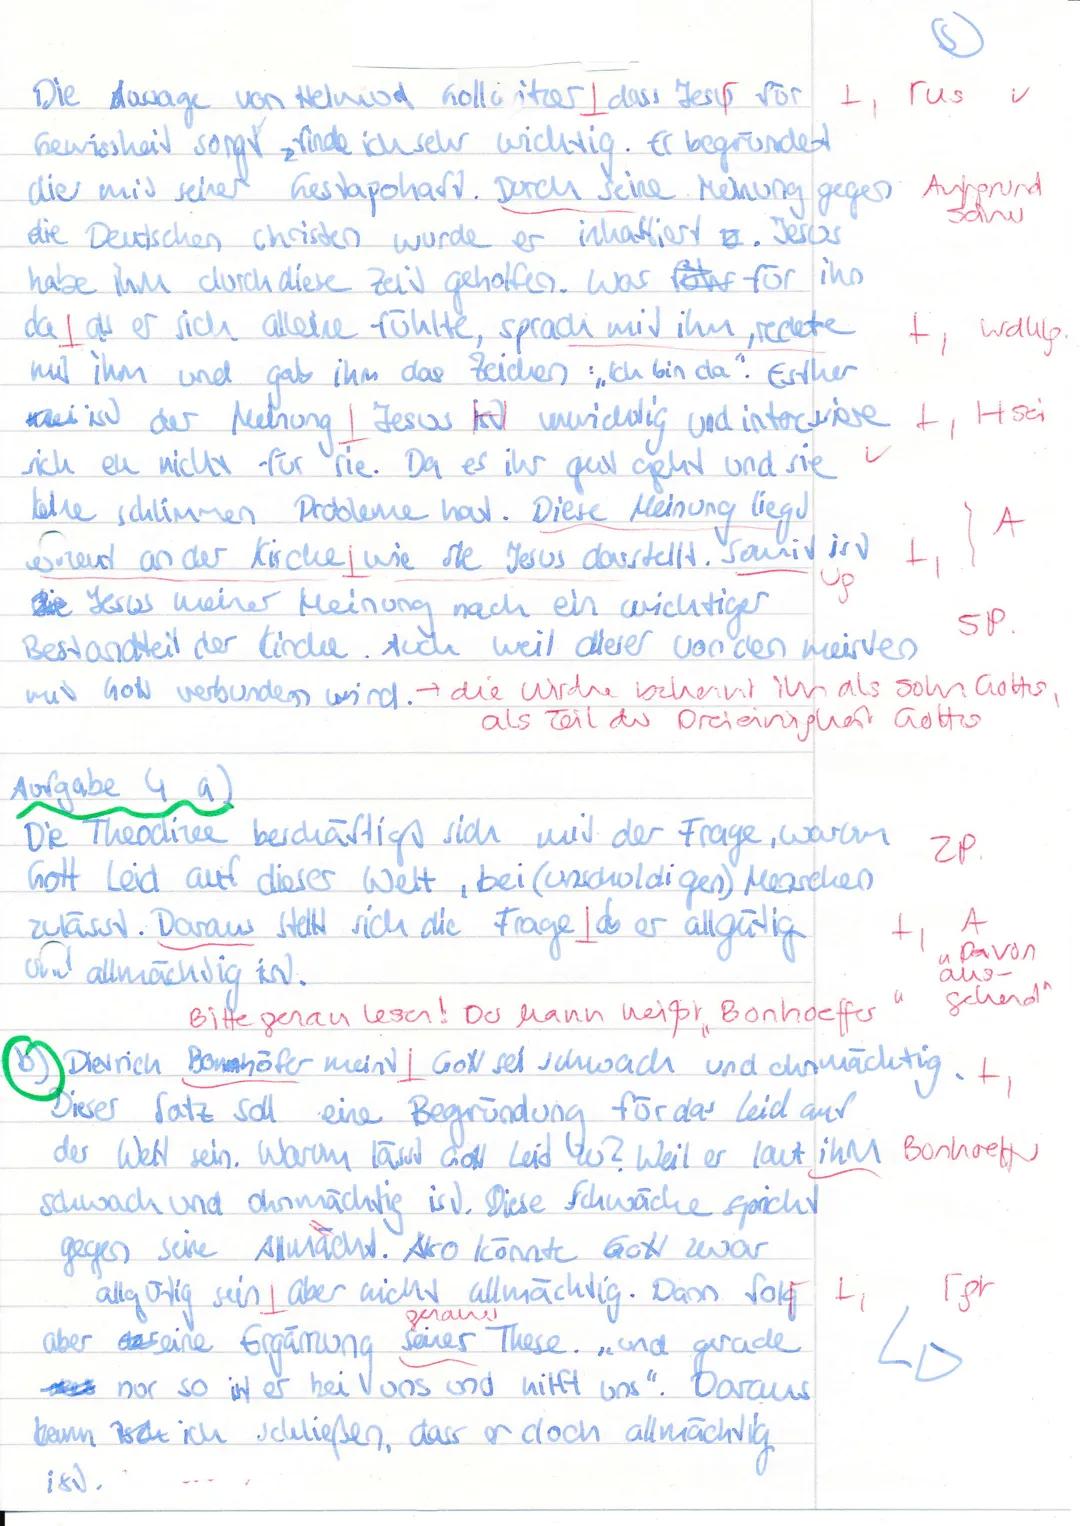 5
Die Aussage von Helmud Gollwitzer, dass Jesus für ⊥, rus v
Gewissheit sorgt, finde ich sehr wichtig. Er begründet
dies mit seiner Gestapohaft. Durch seine Meinung gegen Aufgrund seiner
die Deutschen Christen wurde er inhaftiert. Jesus
habe ihm durch diese Zeit geholfen. War für ihn
da als er sich alleine fühlte, sprach mit ihm, redete +, wdhlg.
mit ihm und gab ihm das Zeichen: „Ich bin da". Esther
ist der Meinung Jesus ist unwichtig und interessiere +, H sei
sich eh nicht für sie. Da es ihr gut geht und sie v
keine schlimmen Probleme hat. Diese Meinung liegt
an der Kirche, wie sie Jesus darstellt. Somit ist +, A
Jesus meiner Meinung nach ein wichtiger
Bestandteil der Kirche. Auch weil dieser von den meisten SP.
mit Gott verbunden wird. → die Kirche bekennt ihn als Sohn Gottes,
als Teil der Dreieinigkeit Gottes
Aufgabe 4 a)
Die Theodizee beschäftigt sich mit der Frage, warum ZP.
Gott Leid auf dieser Welt, bei (unschuldigen) Menschen
zulässt. Daraus stellt sich die Frage ob er allgütig +, A
und allmächtig ist. "Davon ausgehend"
Bitte genau lesen! Der Mann heißt „Bonhoeffer"
b) Dietrich Bonnhöfer meint Gott sei schwach und ohnmächtig. +,
Dieser Satz soll eine Begründung für das Leid auf
der Welt sein. Warum lässt Gott Leid zu? Weil er laut ihm Bonhoeffer
schwach und ohnmächtig ist. Diese Schwäche spricht
gegen seine Allmacht. Also könnte Gott zwar
allgütig sein aber nicht allmächtig. Dann folgt +, Γ gt
genauer
aber eine Ergänzung seiner These. „und gerade
nur so ist er bei uns und hilft uns". Daraus
kann ich schließen, dass er doch allmächtig
ist.